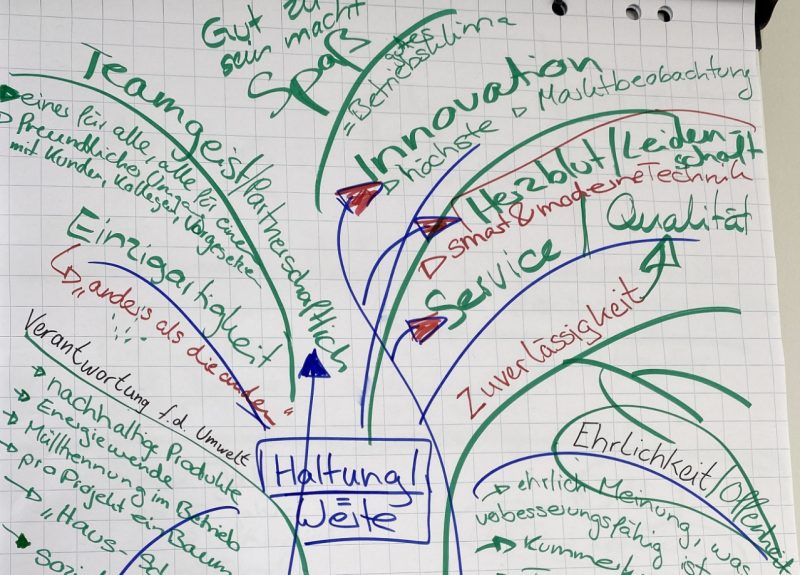 Gut zu
sein macht
Spaß
gutes
= Betriebsklima
Teamgeist/Partnerschaftlich
eines für alle, alle für einen
Freundlicher Umgang
mit Kunden, Kollegen, Vorgesetzten
Innovation
höchste
Marktbeobachtung
Herzblut/Leiden-
schaft
smart & moderne Technik
Service / Qualität
Zuverlässigkeit
Einzigartigkeit
"anders als die anderen"
Verantwortung f.d. Umwelt
nachhaltige Produkte
Energiewende
Mülltrennung im Betrieb
pro Projekt ein Baum
"Haus-
Haltung/
Werte
Ehrlichkeit/Offenheit
ehrlich Meinung, was
verbesserungsfähig ist